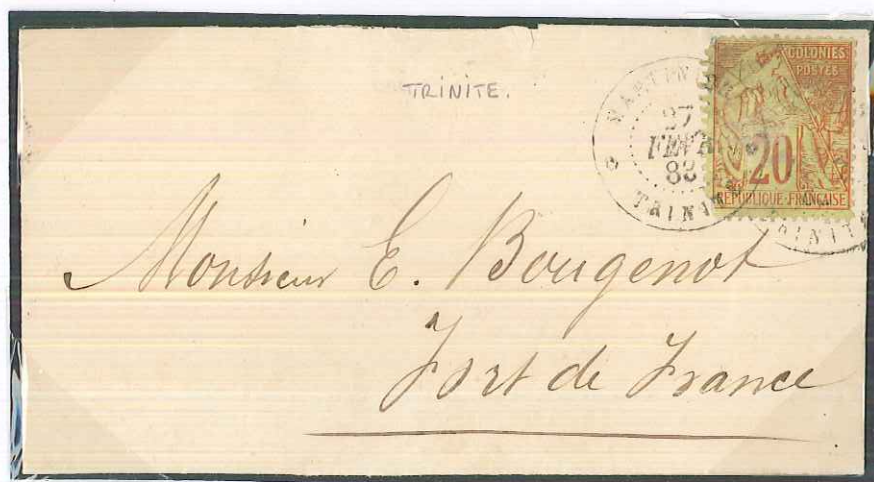 TRINITE.
MARTINIQUE
27
FEVR
83
TRINITE
COLONIES
POSTES
20
REPUBLIQUE FRANÇAISE
TRINITE
Monsieur E. Bougenot
Fort de France